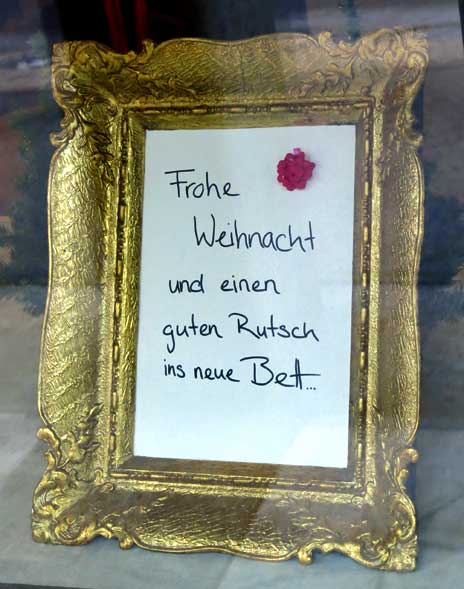 Frohe
Weihnacht
und einen
guten Rutsch
ins neue Bett...